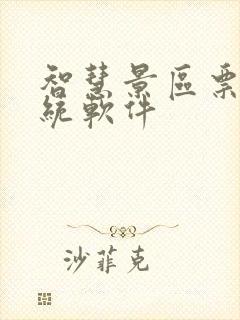 智慧景區票
統軟件
沙菲克